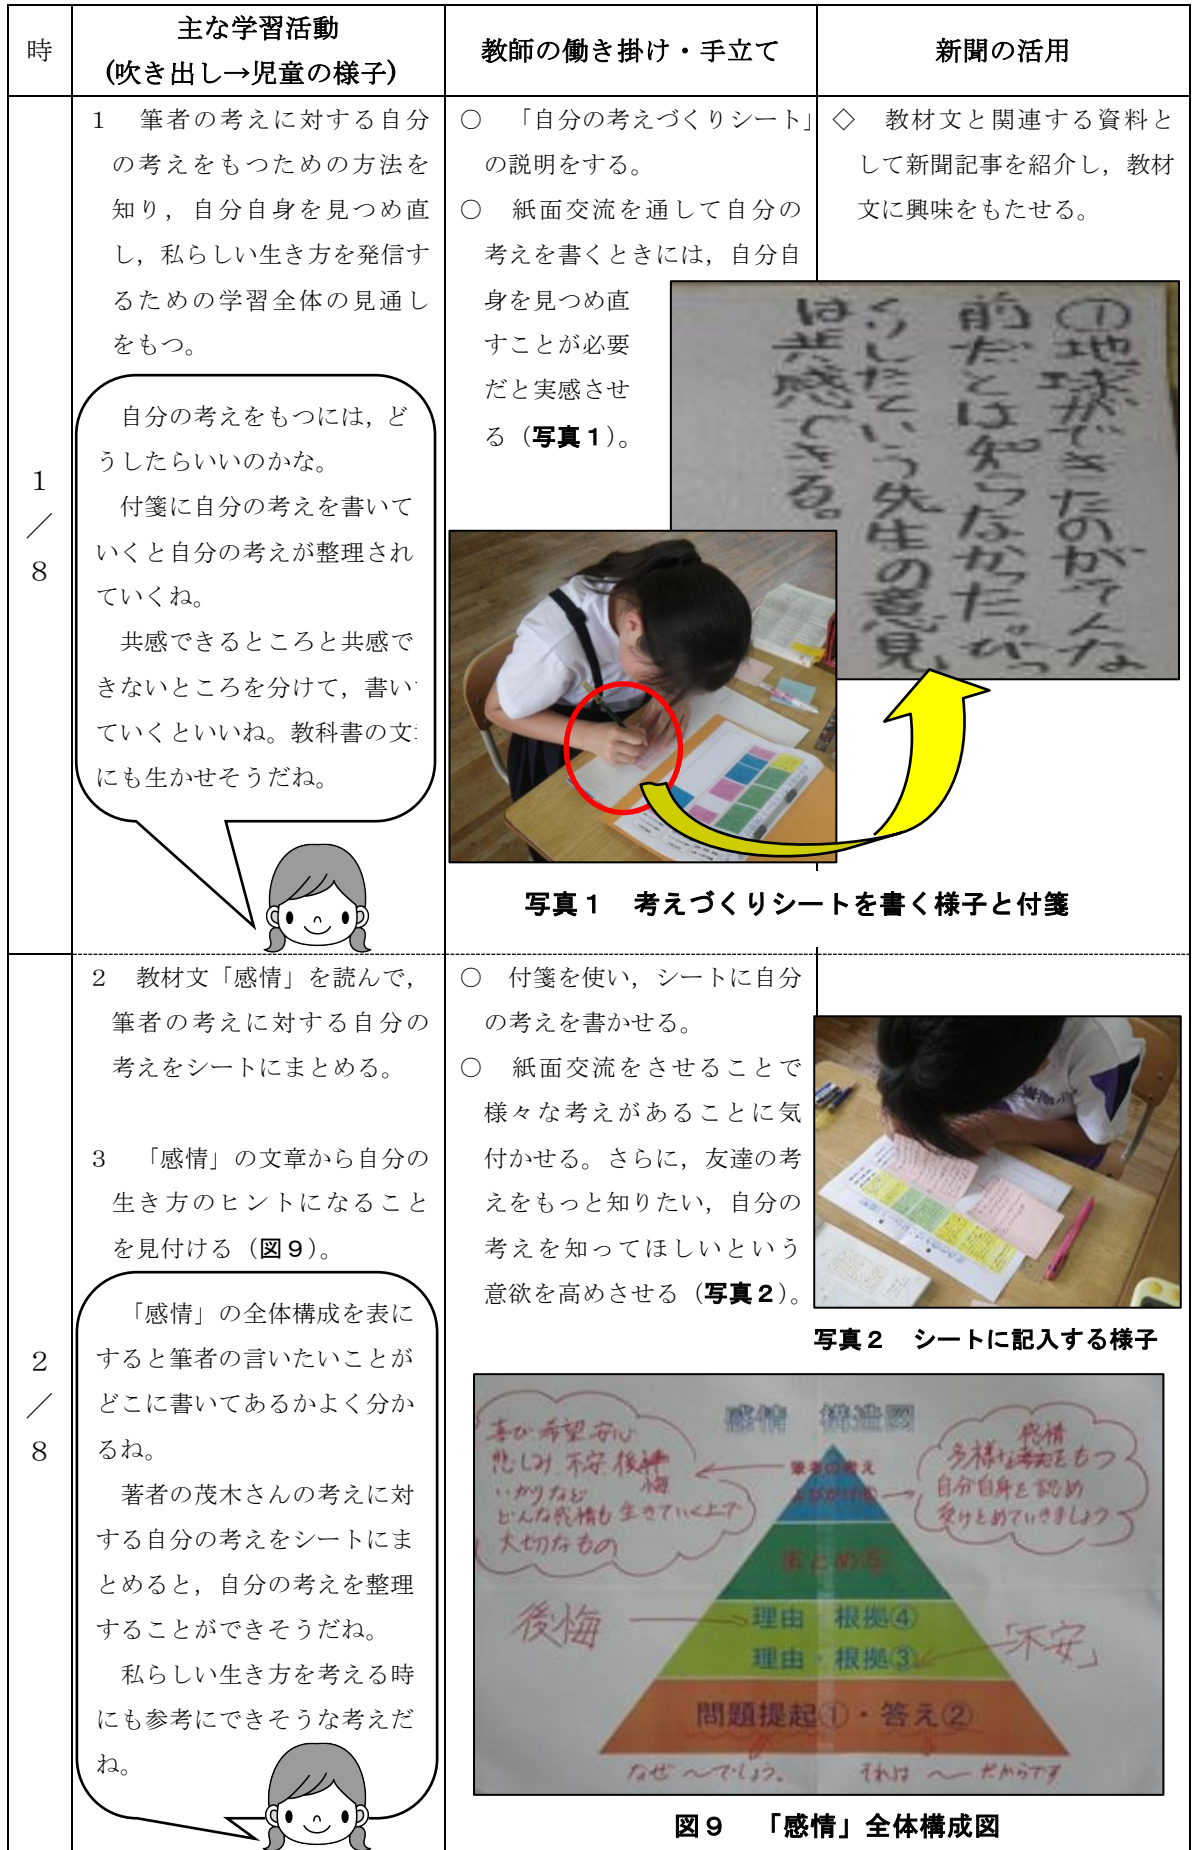 時
主な学習活動
(吹き出し→児童の様子)
教師の働き掛け・手立て
新聞の活用
1／8
1　筆者の考えに対する自分
の考えをもつための方法を
知り，自分自身を見つめ直
し，私らしい生き方を発信す
るための学習全体の見通し
をもつ。
自分の考えをもつには，ど
うしたらいいのかな。
付箋に自分の考えを書いて
いくと自分の考えが整理され
ていくね。
共感できるところと共感で
きないところを分けて，書い
ていくといいね。教科書の文
にも生かせそうだね。
○　「自分の考えづくりシート」
の説明をする。
○　紙面交流を通して自分の
考えを書くときには，自分自
身を見つめ直
すことが必要
だと実感させ
る（写真１）。
◇　教材文と関連する資料と
して新聞記事を紹介し，教材
文に興味をもたせる。
①地球ができたのがそんな
前だとは知らなかった。びっ
くりしたという先生の意見
は共感できる。
写真１　考えづくりシートを書く様子と付箋
2／8
2　教材文「感情」を読んで，
筆者の考えに対する自分の
考えをシートにまとめる。
3　「感情」の文章から自分の
生き方のヒントになること
を見付ける（図９）。
「感情」の全体構成を表に
すると筆者の言いたいことが
どこに書いてあるかよく分か
るね。
著者の茂木さんの考えに対
する自分の考えをシートにま
とめると，自分の考えを整理
することができそうだね。
私らしい生き方を考える時
にも参考にできそうな考えだ
ね。
○　付箋を使い，シートに自分
の考えを書かせる。
○　紙面交流をさせることで
様々な考えがあることに気
付かせる。さらに，友達の考
えをもっと知りたい，自分の
考えを知ってほしいという
意欲を高めさせる（写真２）。
写真２　シートに記入する様子
感情　構造図
喜び 希望 安心
悲しみ 不安 後悔
いかりなど
どんな感情も生きていく上で
大切なもの
筆者の考え
よびかけ⑥
感情
多様な考えをもつ
自分自身を認め
受けとめていきましょう
まとめ⑤
後悔
理由・根拠④
理由・根拠③
「不安」
問題提起①・答え②
なぜ〜でしょう。
それは〜だからです
図９　「感情」全体構成図